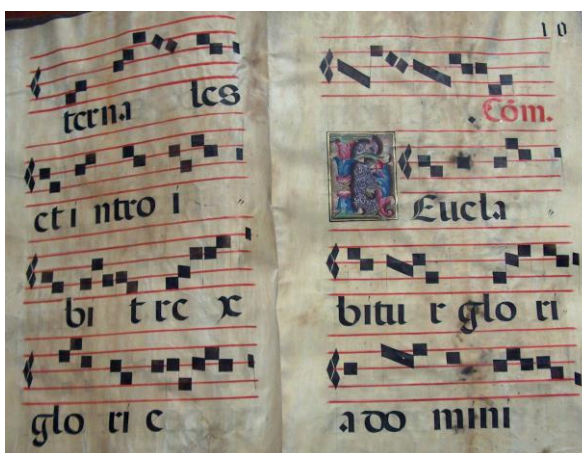 terna les
et i ntro i
bi t rex
glo ri e
10
.Cōm.
REuela
bitu r glo ri
a do mini